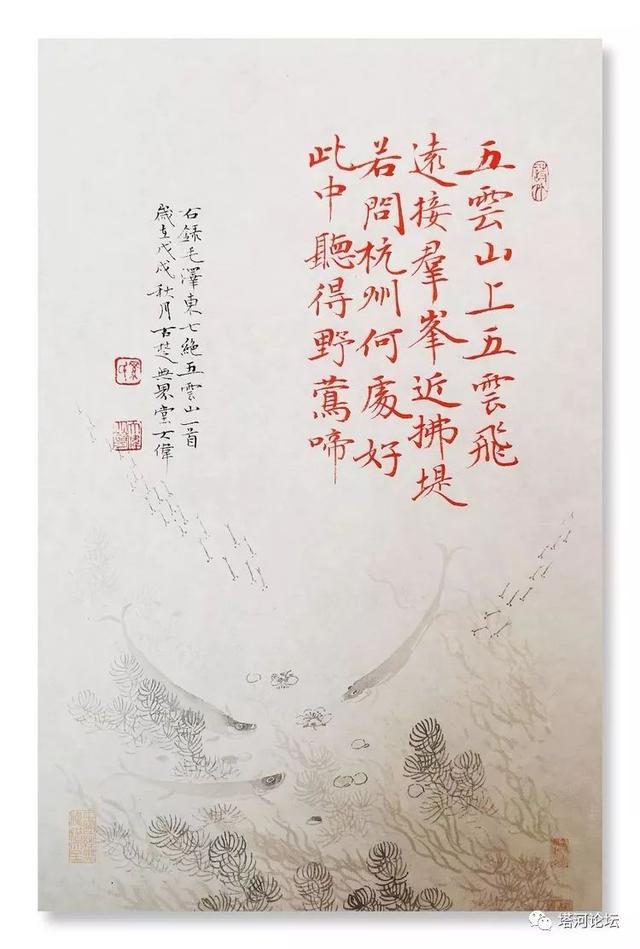 五雲山上五雲飛
遠接羣峯近拂堤
若問杭州何處好
此中聽得野鶯啼
右録毛澤東七絶五雲山一首
歲在戊戌秋月古楚 堂大偉
塔河论坛